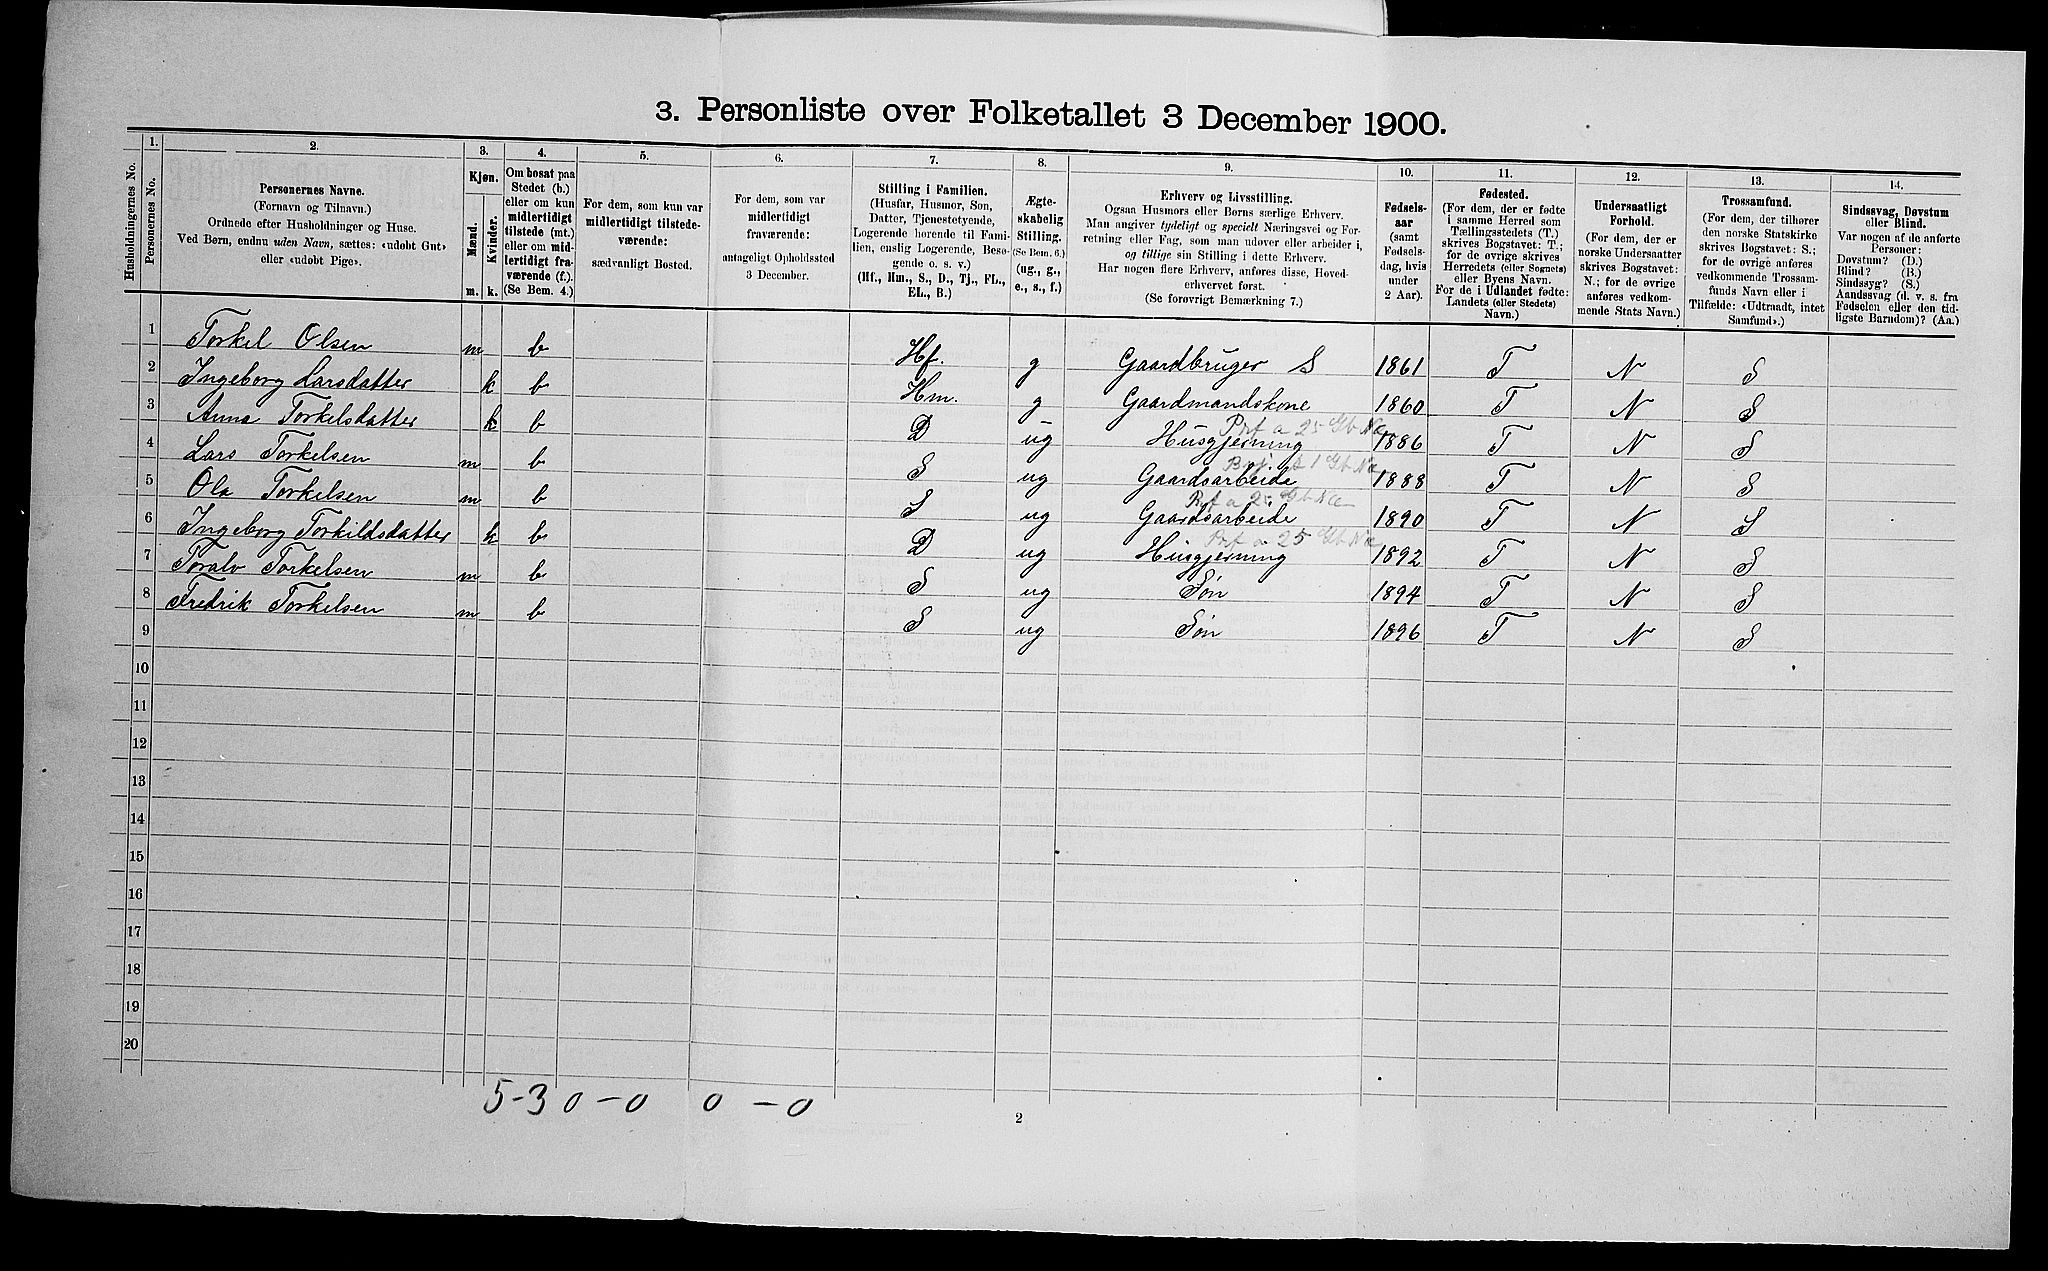 3. Personliste over Folketallet 3 December 1900.
Husholdningernes No.
1.
Personernes No.
2.
Personernes Navne.
(Fornavn og Tilnavn.)
Ordnede efter Husholdninger og Huse.
Ved Børn, endnu uden Navn, sættes: «udøbt Gut»
eller «udøbt Pige».
3.
Kjøn.
Mænd.
Kvinder.
m.
k.
4.
Om bosat paa
Stedet (b.)
eller om kun
midlertidigt
tilstede (mt.)
eller om mid-
lertidigt fra-
værende (f.).
(Se Bem. 4.)
5.
For dem, som kun var
midlertidigt tilstede-
værende:
sædvanligt Bosted.
6.
For dem, som var
midlertidigt
fraværende:
antageligt Opholdssted
3 December.
7.
Stilling i Familien.
(Husfar, Husmor, Søn,
Datter, Tjenestetyende,
Logerende hørende til Fami-
lien, enslig Logerende, Besø-
gende o. s. v.)
(Hf., Hm., S., D., Tj., FL.,
EL., B.)
8.
Ægte-
skabelig
Stilling.
(Se Bem. 6.)
(ug., g.,
e., s., f.)
9.
Erhverv og Livsstilling.
Ogsaa Husmors eller Børns særlige Erhverv.
Man angiver tydeligt og specielt Næringsvei og For-
retning eller Fag, som man udøver eller arbeider i,
og tillige sin Stilling i dette Erhverv.
Har nogen flere Erhverv, anføres disse, Hoved-
erhvervet først.
(Se forøvrigt Bemærkning 7.)
10.
Fødsels-
aar
(samt
Fødsels-
dag, hvis
under
2 Aar).
11.
Fødested.
(For dem, der er fødte
i samme Herred som
Tællingsstedets (T.)
skrives Bogstavet: T.;
for de øvrige skrives
Herredets (eller Sognets)
eller Byens Navn.
For de i Udlandet fødte:
Landets (eller Stedets)
Navn.)
12.
Undersaatligt
Forhold.
(For dem, der er
norske Undersaatter
skrives Bogstavet:
N.; for de øvrige
anføres vedkom-
mende Stats Navn.)
13.
Trossamfund.
(For dem, der tilhører
den norske Statskirke
skrives Bogstavet: S.;
for de øvrige anføres
vedkommende Trossam-
funds Navn eller i
Tilfælde: «Udtraadt, intet
Samfund».)
14.
Sindssvag, Døvstum
eller Blind.
Var nogen af de anførte
Personer:
Døvstum? (D.)
Blind? (B.)
Sindssyg? (S.)
Aandssvag (d. v. s. fra
Fødselen eller den tid-
ligste Barndom)? (Aa.)
1 Torkel Olsen m b Hf. g Gaardbruger S 1861 T N S
2 Ingeborg Larsdatter k b Hm. g Gaardmandskone 1860 T N S
3 Anna Torkelsdatter k b D ug Husgjerning 1886 T N S
4 Lars Torkelsen m b S ug Gaardsarbeide 1888 T N S
5 Ola Torkelsen m b S ug Gaardsarbeide 1890 T N S
6 Ingeborg Torkildsdatter k b D ug Husgjerning 1892 T N S
7 Toralv Torkelsen m b S ug Søn 1894 T N S
8 Fredrik Torkelsen m b S ug Søn 1896 T N S
9
10
11
12
13
14
15
16
17
18
19
20
5-3 0-0 0-0
2